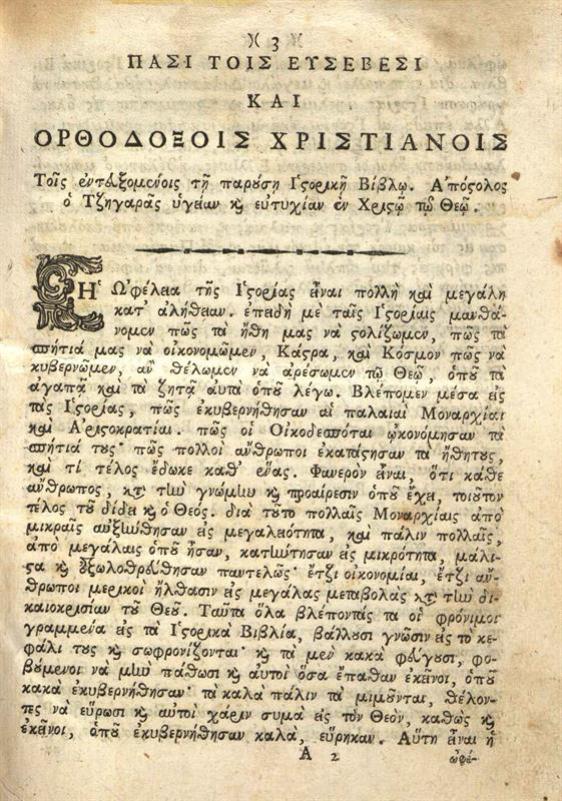 )( 3 )(
ΠΑΣΙ ΤΟΙΣ ΕΥΣΕΒΕΣΙ
ΚΑΙ
ΟΡΘΟΔΟΞΟΙΣ ΧΡΙΣΤΙΑΝΟΙΣ
Τοῖς ἐντδξομένοις τῇ παρούσῃ Ἱστορικῇ Βίβλῳ. Ἀπόστολος
ὁ Τζηγαρᾶς ὑγείαν κỳ εὐτυχίαν ἐν Χριστῷ τῷ Θεῷ.
Ἡ Ὠφέλεια τῆς Ἱστορίας εἶναι πολλὴ καὶ μεγάλη
κατ' ἀλήθειαν. ἐπειδὴ μὲ ταῖς Ἱστορίαις μανθά-
νομεν πῶς τὰ ἤθη μας νὰ στολίζωμεν, πῶς τὰ
σπήτιά μας νὰ οἰκονομῶμεν, Κάστρα, καὶ Κόσμον πῶς νὰ
κυβερνῶμεν, ἂν θέλωμεν νὰ ἀρέσωμεν τῷ Θεῷ, ὁποῦ τὰ
ἀγαπᾷ καὶ τὰ ζητᾷ αὐτὰ ὁποῦ λέγω. Βλέπομεν μέσα εἰς
τὰς Ἱστορίας, πῶς ἐκυβερνήθησαν αἱ παλαιαὶ Μοναρχίαι
καὶ Ἀριστοκρατίαι. πῶς οἱ Οἰκοδεσπόται ᾠκονόμησαν τὰ
σπήτιά τους· πῶς πολλοὶ ἄνθρωποι ἐκατάστησαν τὰ ἤθητους,
καὶ τί τέλος ἔδωκε καθ' ἕνας. Φανερὸν εἶναι, ὅτι κάθε
ἄνθρωπος, κατὰ τὴν γνώμην κỳ προαίρεσιν ὁποῦ ἔχει, τοιοῦτον
τέλος τοῦ δίδει κỳ ὁ Θεός. διὰ τοῦτο πολλαῖς Μοναρχίαις ἀπὸ
μικραῖς αὐξήνθησαν εἰς μεγαλειότητα, καὶ πάλιν πολλαῖς,
ἀπὸ μεγάλαις ὁποῦ ἦσαν, κατήντησαν εἰς μικρότητα, μάλι-
στα κỳ ἐξωλοθρεύθησαν παντελῶς· ἔτζι οἰκονομίαι, ἔτζι ἄν-
θρωποι μερικοὶ ἤλθασιν εἰς μεγάλας μεταβολὰς κατὰ τὴν δι-
καιοκρισίαν τοῦ Θεοῦ. Ταῦτα ὅλα βλέποντάς τα οἱ φρόνιμοι
γραμμένα εἰς τὰ Ἱστορικὰ Βιβλία, βάλλουσι γνῶσιν εἰς τὸ κε-
φάλι τους κỳ σωφρονίζονται· κỳ τὰ μὲν κακὰ φεύγουσι, φο-
βούμενοι νὰ μὴν πάθωσι κỳ αὐτοὶ ὅσα ἔπαθαν ἐκεῖνοι, ὁποῦ
κακὰ ἐκυβερνήθησαν· τὰ καλὰ πάλιν τὰ μιμοῦνται, θέλον-
τες νὰ εὕρωσι κỳ αὐτοὶ χάριν σιμὰ εἰς τὸν Θεόν, καθὼς κỳ
ἐκεῖνοι, ὁποῦ ἐκυβερνήθησαν καλά, εὕρηκαν. Αὕτη εἶναι ἡ
A 2
ὠφέ-